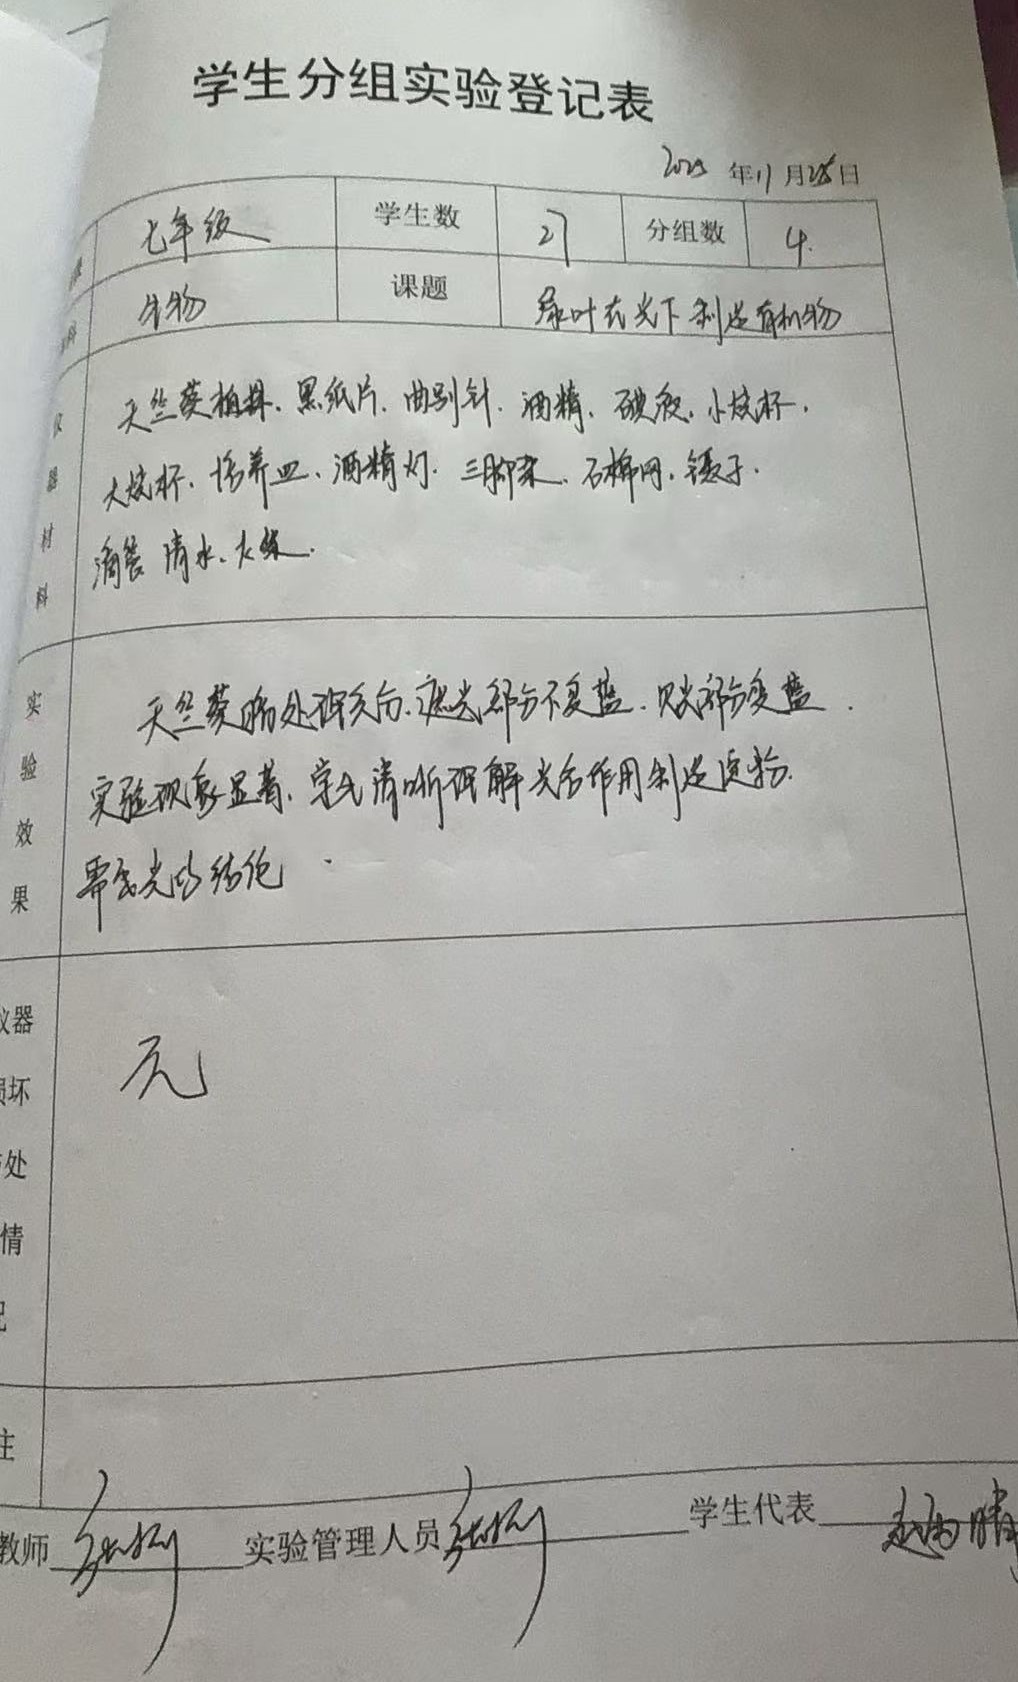 学生分组实验登记表
2025年11月28日
七年级 学生数 27 分组数 4.
科 生物 课题 绿叶在光下制造有机物
天竺葵植株、黑纸片、曲别针、酒精、碘液、小烧杯、
大烧杯、培养皿、酒精灯、三脚架、石棉网、镊子、
器材料
滴管 清水、火柴.
天竺葵 处理后、遮光部分不变蓝、见光部分变蓝.
实验效果
实验现象显著、学生清晰理解光合作用制造淀粉
需要光的结论.
仪器
损坏
处
情
无
注
教师 实验管理人员 学生代表